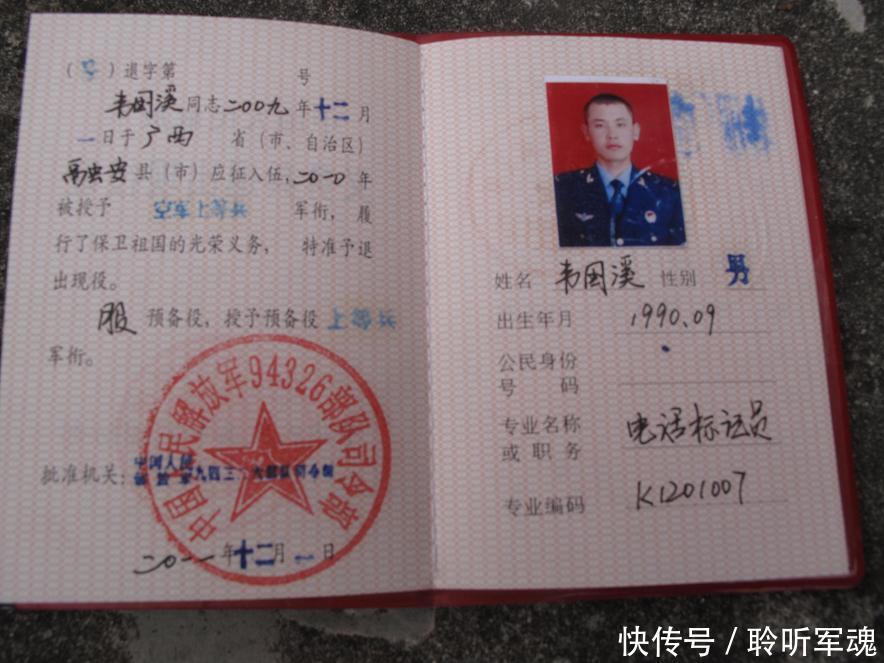 (空)退字第 号
韦国溪同志二00九年十二月
一日于广西省(市、自治区)
安县(市)应征入伍,二0一0年
被授予空军上等兵军衔,履
行了保卫祖国的光荣义务,特准予退
出现役。
服预备役,授予预备役上等兵
军衔。
中国人民解放军94326部队司令部
批准机关:中国人民
解放军九四三二六部队司令部
二0一一年十二月一日
姓名 韦国溪 性别 男
出生年月 1990.09
公民身份
号码
专业名称 电话标话员
或职务
专业编码 K1201007
快传号 / 聆听军魂